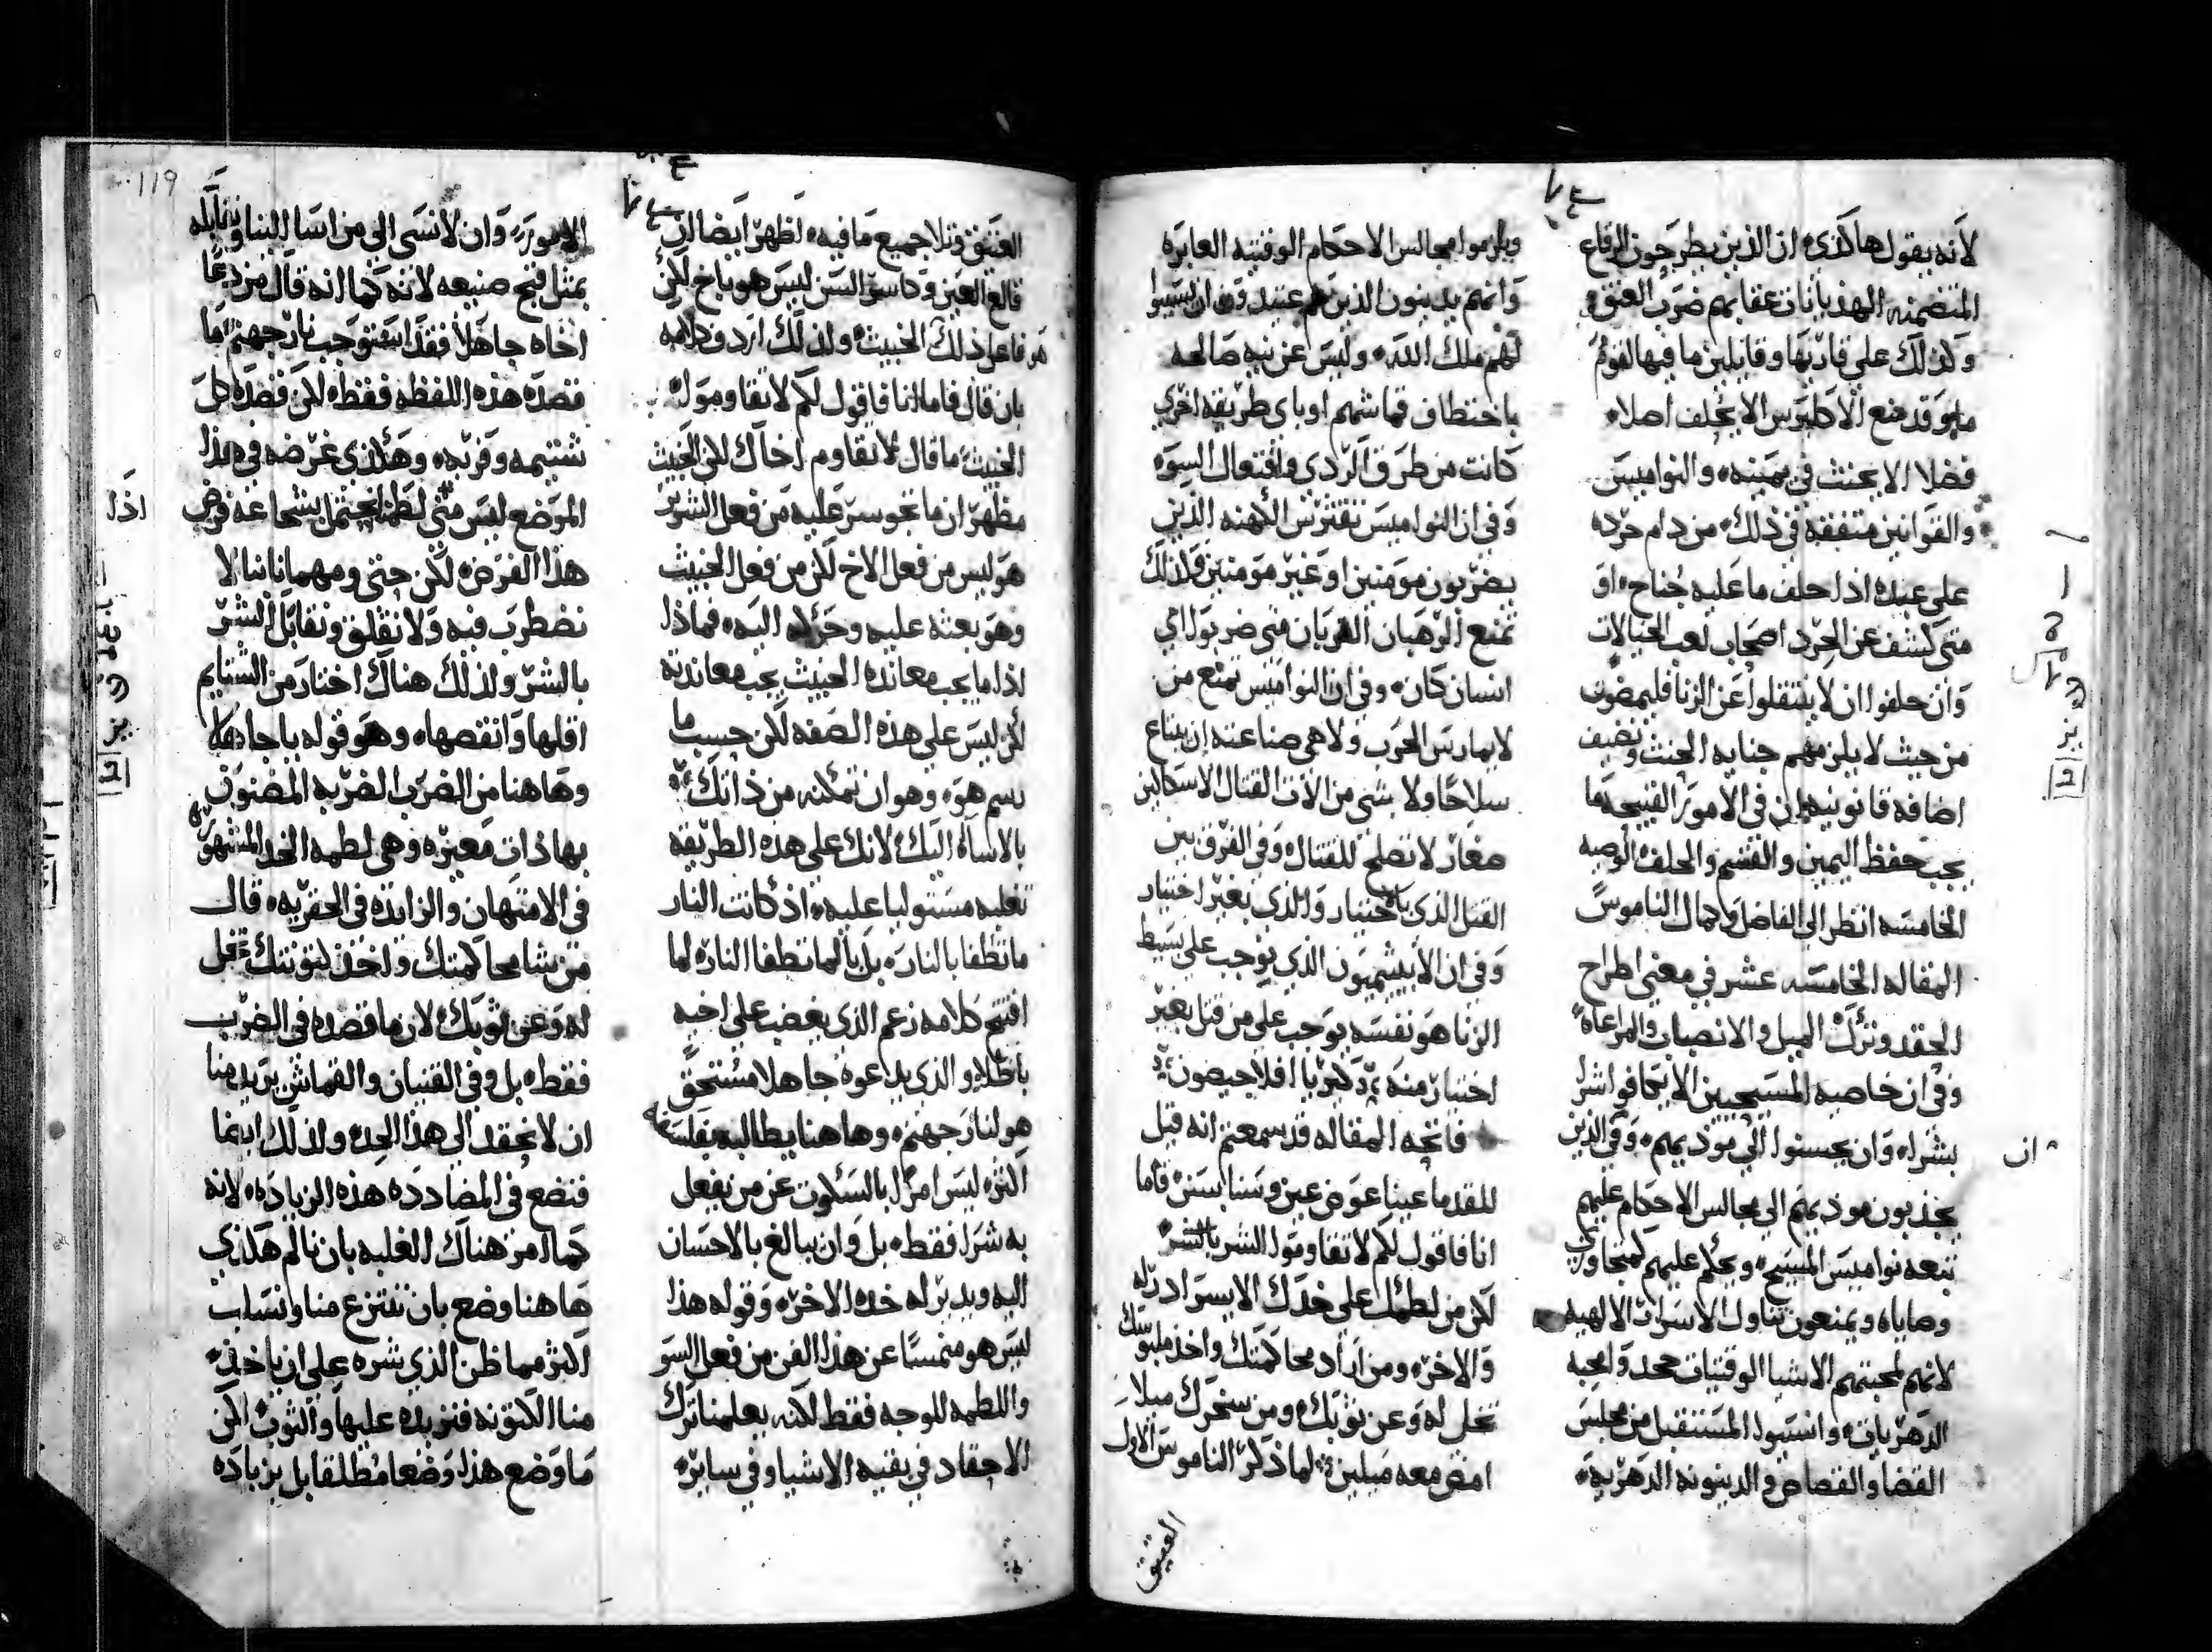 لانه يقول هاكذى ان الذين يطرحون الرقاع
المتضمنه الهذيانات عقابهم ضرب العنق
وكذلك على قاريها وقابلين ما فيها لقوم
قد منع الاكليرس الا يحلف اصلا
فضلا الا يحنث في يمينه والنواميس
والقوانين متفقه في ذلك من دام حرده
على عبده اذا حلف ما عليه جناح او
متى كشف عن الحرد اصحاب لعب الخيالات
وان حلفوا ان لا ينتقلوا عن الزنا فليمضون
من حيث لا يلزمهم جنايه الحنث ونضيف
اضافه قانونيه ان في الامور القبيحه ما
يجب حفظ اليمين والقسم والحلف الوصيه
الخامسه انظر الى الفاضل وكمال الناموس
المقاله الخامسه عشر في معنى اطراح
الحقد وترك الميل والانصبات والمراعاه
وفي ان خاصيه المسيحيين الا يكافوا اشرا
بشرا وان يحسنوا الى موذيهم وفي الذين
يجذبون موذيهم الى مجالس الاحكام عليهم
تبعه نواميس المسيح ويحكم عليهم كمتجاوزين
وصاياه ويمنعون تناول الاسرار الالهيه
لانهم لمحبتهم الاشيا الوقتيات جحدوا محبه
الدهريات وانسيوا المستقبل من مجلس
القضا والقصاص في الدينونه الدهريه
ان
ويلزموا مجالس الاحكام الوقتيه العابره
وانهم يدينون الذين هم عتيد ان
لهم ملك الله وليس عن نيه صالحه
باختطاف قماشهم او باى طريقه اخرى
كانت من طرق الردي وافتعال السوه
وفي ان النواميس تقترس الكهنه الذين
يضربون مومنين او غير مومنين وكذلك
تمنع الرهبان القربان متى ضربوا اي
انسان كان وفي ان النواميس تمنع من
لا يمارس الحرب ولا هي صناعته ان يبتاع
سلاحا ولا بشي من الات القتال الا سكاكين
صغار لا تصلح للقتال وفي الفرق بين
القتل الذي باختيار والذي بغير اختيار
وفي ان الابيثيميون الذي يوجب على بسيط
الزنا هو نفسه يوجب على من قتل بغير
اختيار منه
فاتحه المقاله قد سمعتم انه قيل
للقدما عينا عوض عين وسنا بسن فاما
انا فاقول لكم لا تقاوموا الشر بالشر
لكن من لطمك على خدك الايسر ادر له
والاخر ومن اراد محاكمتك واخذ ملبوسك
تخل له وعن ثوبك ومن سخرك ميلا
امض معه ميلين لما ذكر الناموس الاول
العتيق
العتيق وتلا جميع ما فيه لظهر ايضا ان
قالع العين وكاسر السن ليس هو باخ لكن
هو فاعل ذلك الخبيث ولذلك اردف كلامه
بان قال فاما انا فاقول لكم لا تقاوموا
الخبيث ما قال لا تقاوم اخاك لكن الخبيث
مظهر ان ما تجوسر عليه من فعل الشرير
هو ليس من فعل الاخ لكن من فعل الخبيث
وهو بعثه عليه وحركه اليه فماذا
اذا ما يجب معانده الخبيث يجب معاندته
لكن ليس على هذه الصفه لكن حسب ما
رسم هو وهو ان تمكنه من ذاتك
بالاساه اليك لانك على هذه الطريقه
تغلبه مستوليا عليه اذ كانت النار
ما تطفا بالنار بل بالما تطفا النار لما
افتتح كلامه زعم الذي يغضب على اخيه
باطلا والذي يدعوه جاهلا مستحق
هو لنار جهنم وها هنا يطالب بفلسفه
اكثر ليس امرا بالسكوت عن من يفعل
به شرا فقط بل وان يبالغ بالاحسان
اليه ويدير له خده الاخر وقوله هذا
ليس هو متمسا عن هذا الفن من فعل السو
واللطمه للوجه فقط لكنه يعلمنا ترك
الاحقاد في بقيه الاشيا وفي ساير
119
الامور وان لا نسى الى من اسا الينا ونقابله
بمثل قبح صنيعه لانه كما انه قال من دعا
اخاه جاهلا فقد استوجب نار جهنم ما
قصده هذه اللفظه فقط لكن قصده كل
شتيمه وفريه وهكذى غرضه في هذا
الموضع ليس متى لطمنا نحتمل بشجاعه فرض
هذا الفرض لكن حتى ومهما نابنا لا
نضطرب فيه ولا نقلق ونقابل الشر
بالشر ولذلك هناك اختار من الشتايم
اقلها وانقصها وهو قوله يا جاهلا
وها هنا من الضرب الضربه المضنون
بها ذات معيره وهي لطمه الخد المشهوره
في الامتهان والزايده في الحقريه قال
من يشا محاكمتك واخذ لتوتيتك تخل
له وعن ثوبك لان ما قصده في الضرب
فقط بل وفي القنيان والقماش يريد منا
ان لا نحقد الى هذا الحد ولذلك اينما
فنضع في المضادده هذه الزياده لانه
كما امر هناك الغلبه بان نالم هكذى
ها هنا وضع بان تنتزع منا وانساب
اكثر مما ظن الذي شره على ان ياخذ
منا اللتونه فنزيده عليها والثوب لكن
ما وضع هذا وضعا مطلقا بل بزياده
اذا